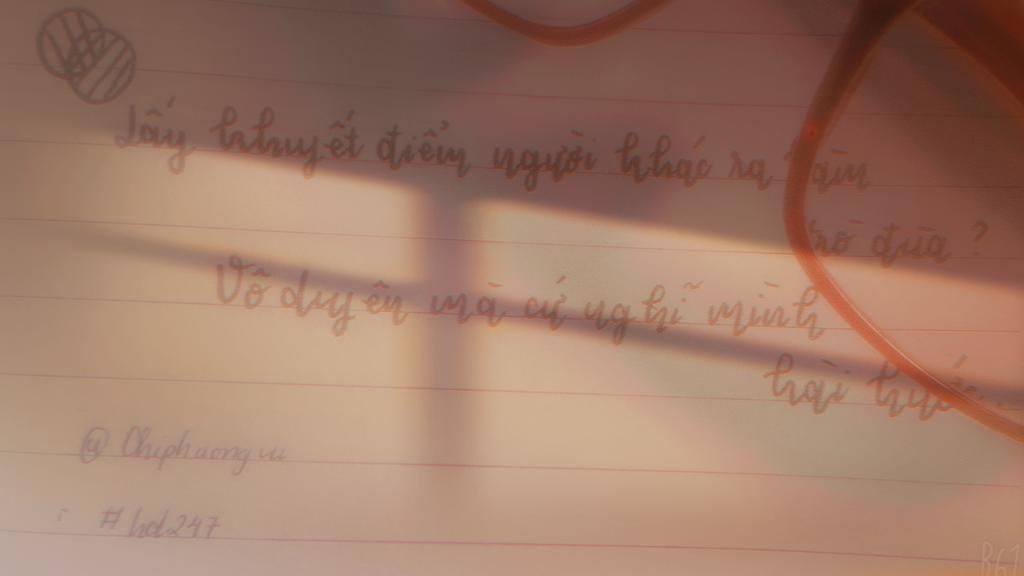 Lấy khuyết điểm người khác ra làm
trò đùa ?
Vô duyên mà cứ nghĩ mình
hài hước...
@ Chiphuongvu
#hd247